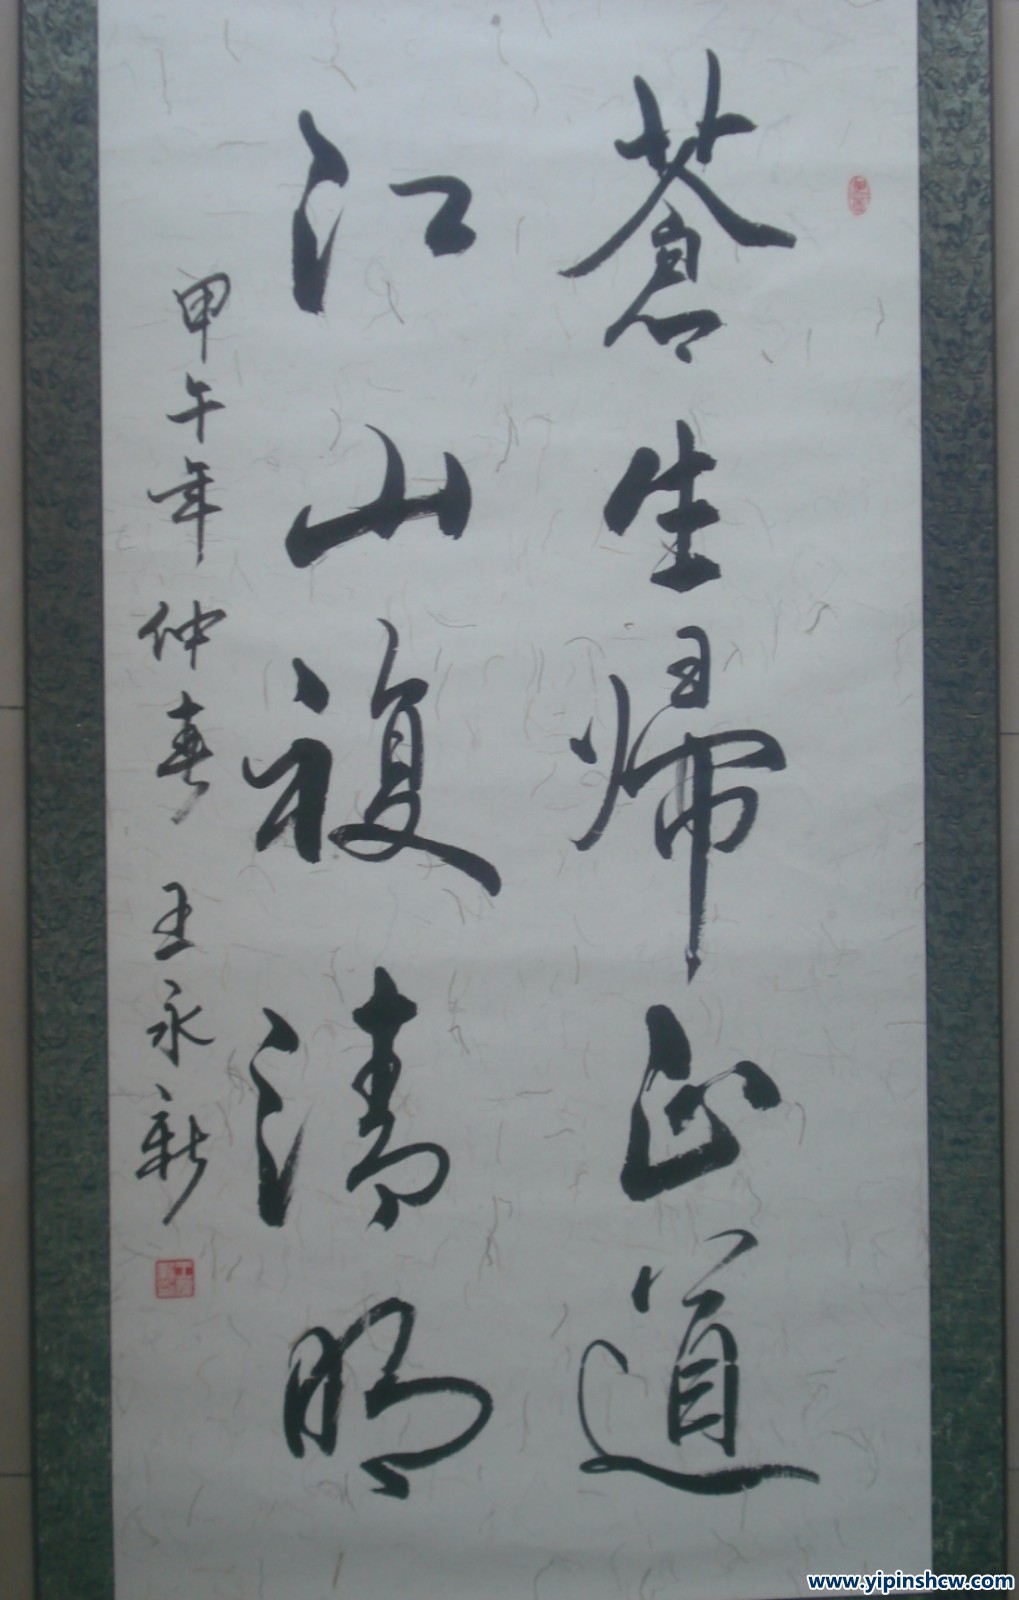 蒼生歸正道
江山複清明
甲午年仲春 王永新
www.yipinshcw.com